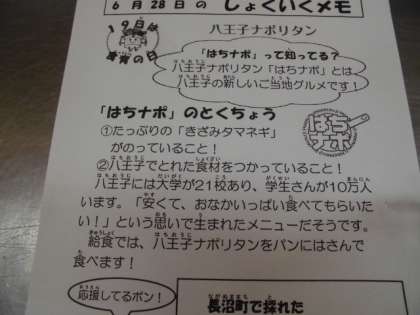 6月28日の しょくいくメモ
19日は
食育の日
八王子ナポリタン
「はちナポ」って知ってる?
八王子ナポリタン「はちナポ」とは
八王子の新しいご当地グルメです!
「はちナポ」のとくちょう
はち
ナポ
①たっぷりの「きざみタマネギ」
がのっていること!
②八王子でとれた食材をつかっていること!
八王子には大学が21校あり、学生さんが10万人
います。「安くて、おなかいっぱい食べてもらいた
い!」という思いで生まれたメニューだそうです。
給食では、八王子ナポリタンをパンにはさんで
食べます!
応援してるポン!
長沼町で採れた